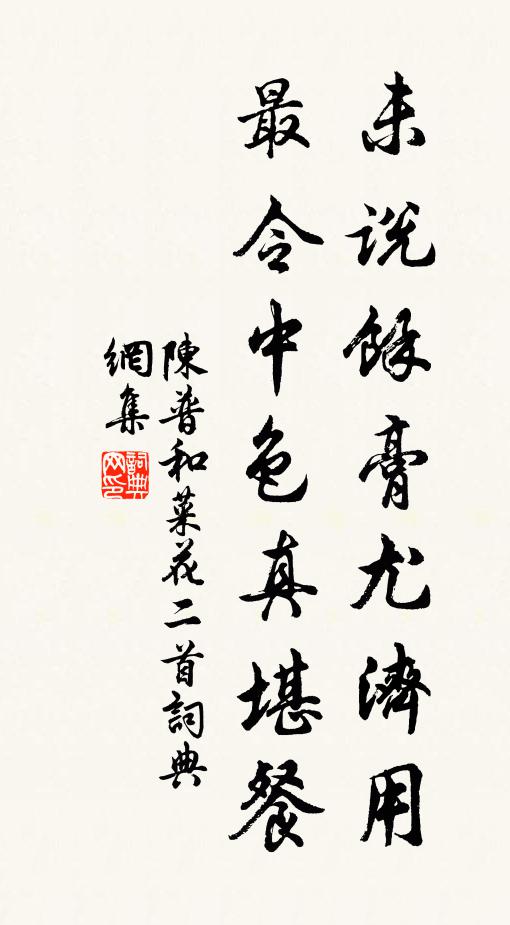 未説餘膏尤濟用
最令中色真堪餐
陳普和菜花二首詞典
網集
詞典
网印